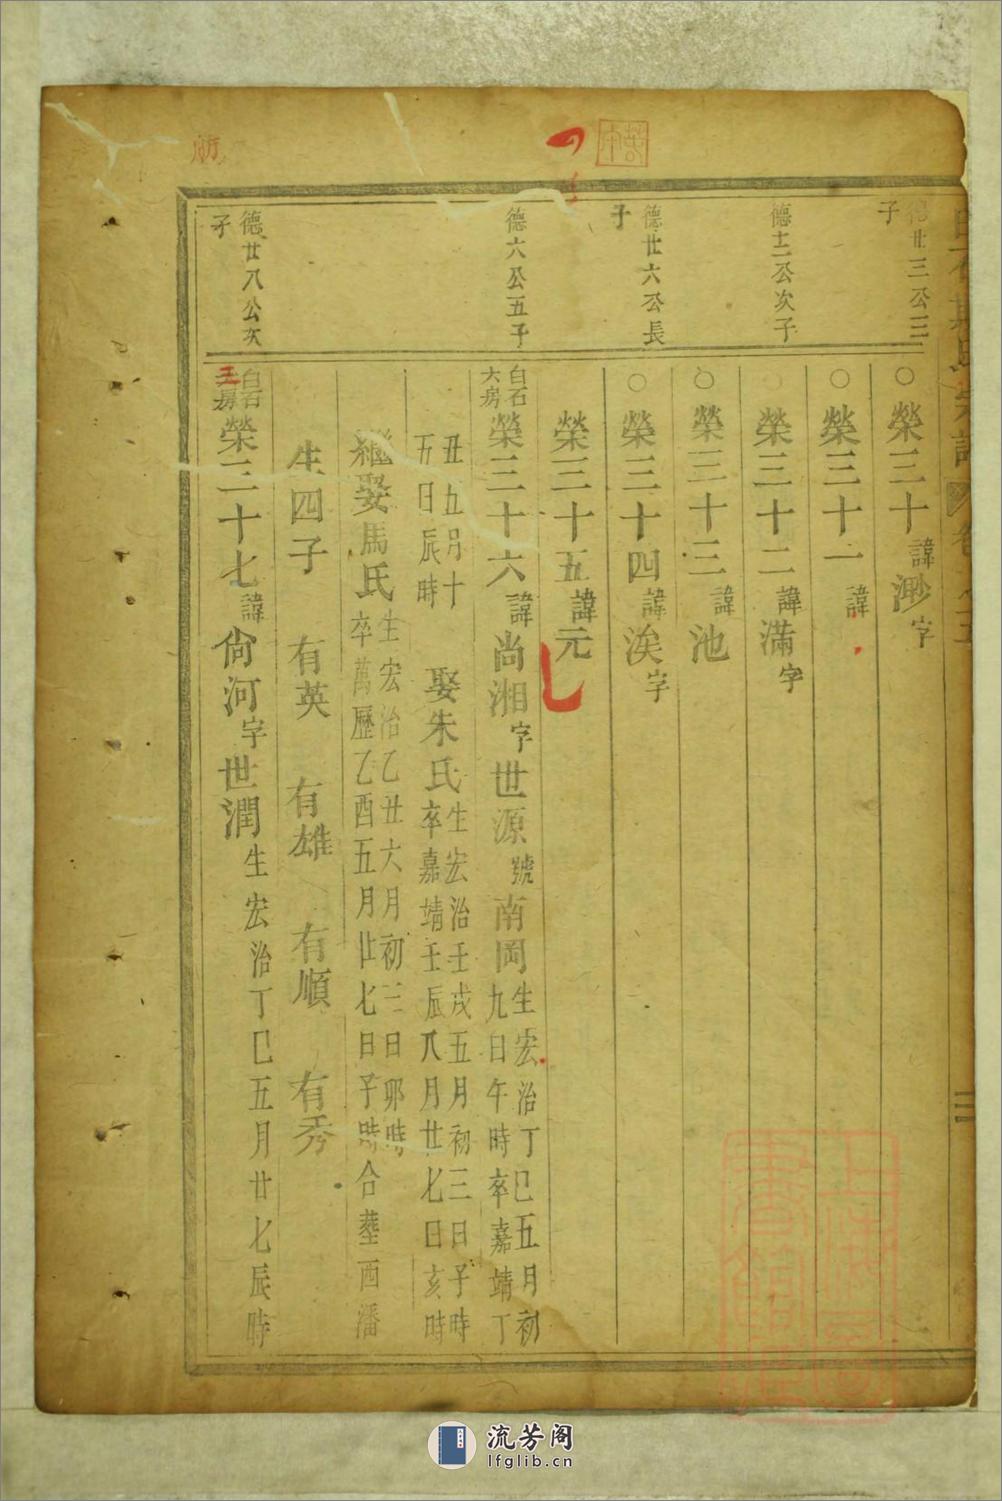 德廿三公三
子
○榮三十諱渺字
○榮三十一諱
德十二公次子
榮三十二諱滿字
○榮三十三諱池
德廿六公長
子
○榮三十四諱涘字
榮三十五諱元
德六公五子
白石
大房
榮三十六諱尚湘字世源號南岡
生宏治丁巳五月初
九日午時卒嘉靖丁
丑五月十
五日辰時
娶朱氏
生宏治壬戌五月初三日子時
卒嘉靖壬辰八月廿七日亥時
繼娶馬氏
生宏治乙丑六月初三日卯時
卒萬歷乙酉五月廿七日子時合塟西潘
生四子 有英 有雄 有順 有秀
德廿八公次
子
白石
三房
榮三十七諱尙河字世潤
生宏治丁巳五月廿七辰時
流芳阁
lfglib.cn